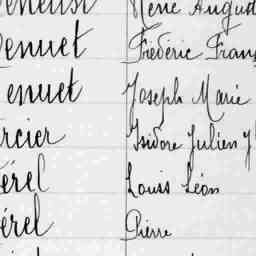 René August
Denuet Frédéric Franç
enuet Joseph Marie
rcier Isidore Julien
érel Louis Léon
érel Pierre